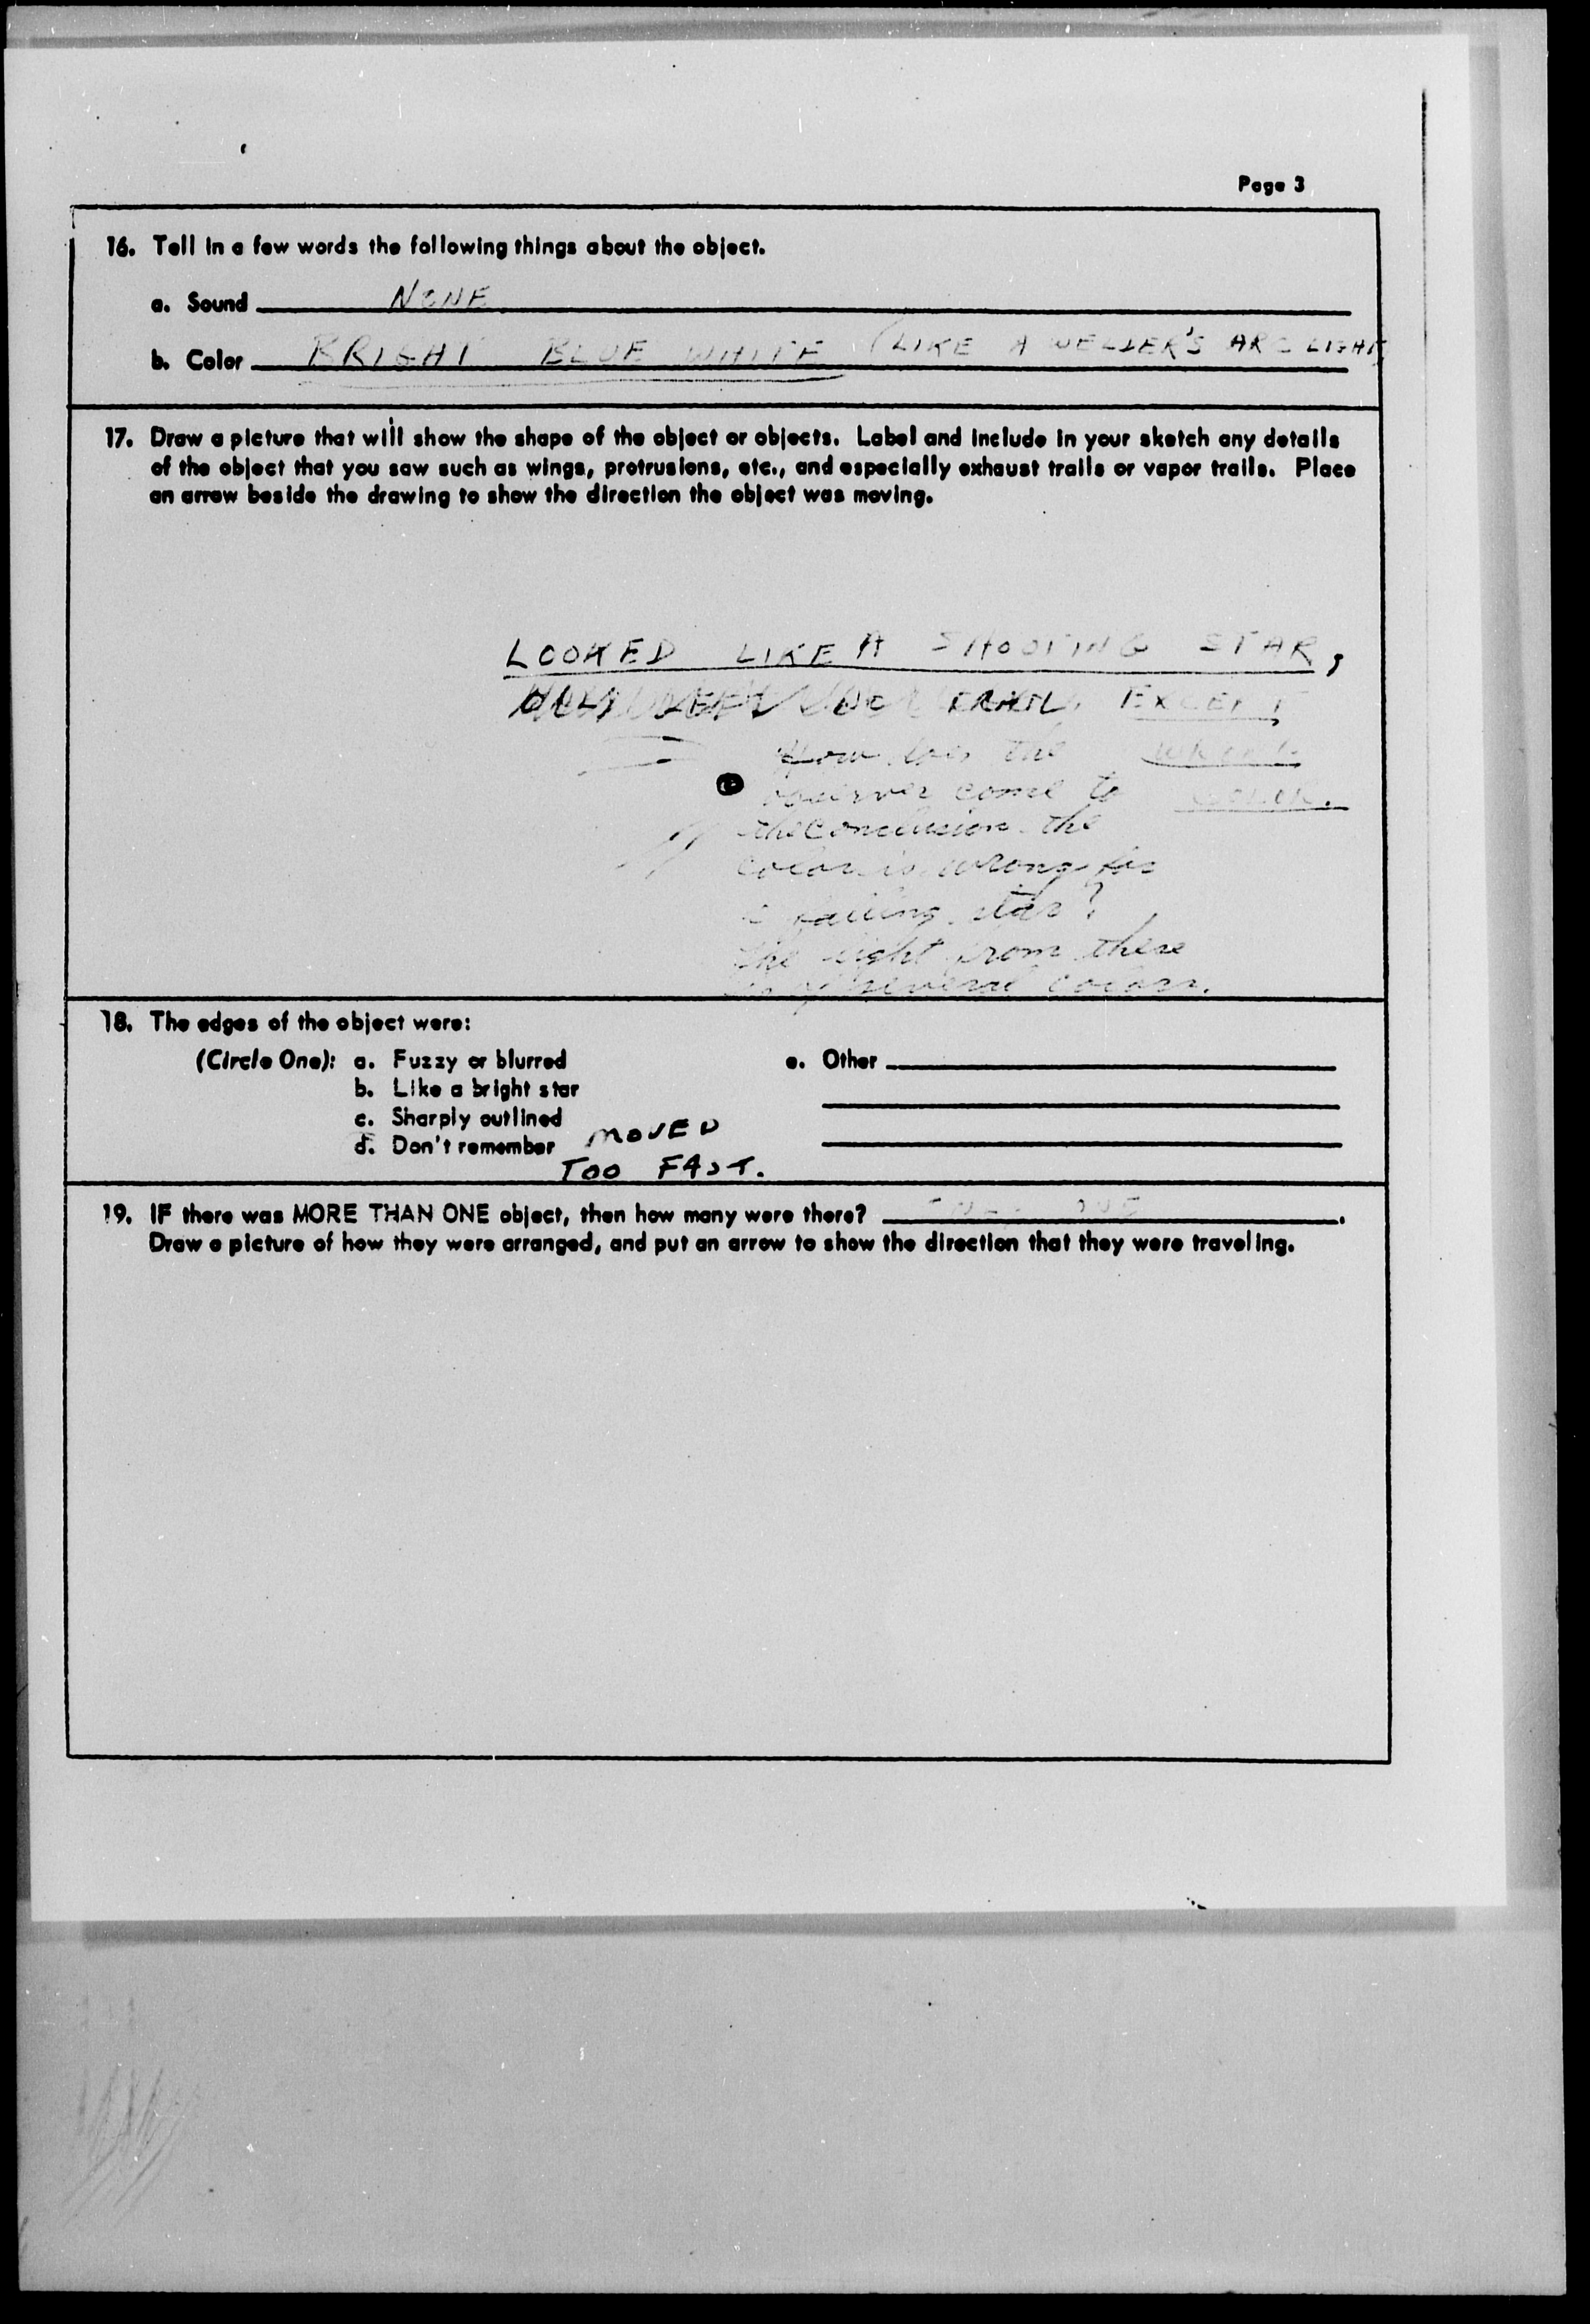 Page 3
16. Tell in a few words the following things about the object.
a. Sound NONE
b. Color BRIGHT BLUE WHITE (LIKE A WELDER'S ARC LIGHT
17. Draw a picture that will show the shape of the object or objects. Label and include in your sketch any details
of the object that you saw such as wings, protrusions, etc., and especially exhaust trails or vapor trails. Place
an arrow beside the drawing to show the direction the object was moving.
LOOKED LIKE A SHOOTING STAR,
TRAIL, EXCEPT
WRONG
COLOR.
How does the
observer come to
the conclusion the
color is wrong for
a falling star?
The light from these
is of several colors.
18. The edges of the object were:
(Circle One): a. Fuzzy or blurred
b. Like a bright star
c. Sharply outlined
d. Don't remember MOVED
TOO FAST.
e. Other
19. IF there was MORE THAN ONE object, then how many were there? ONE.
Draw a picture of how they were arranged, and put an arrow to show the direction that they were traveling.